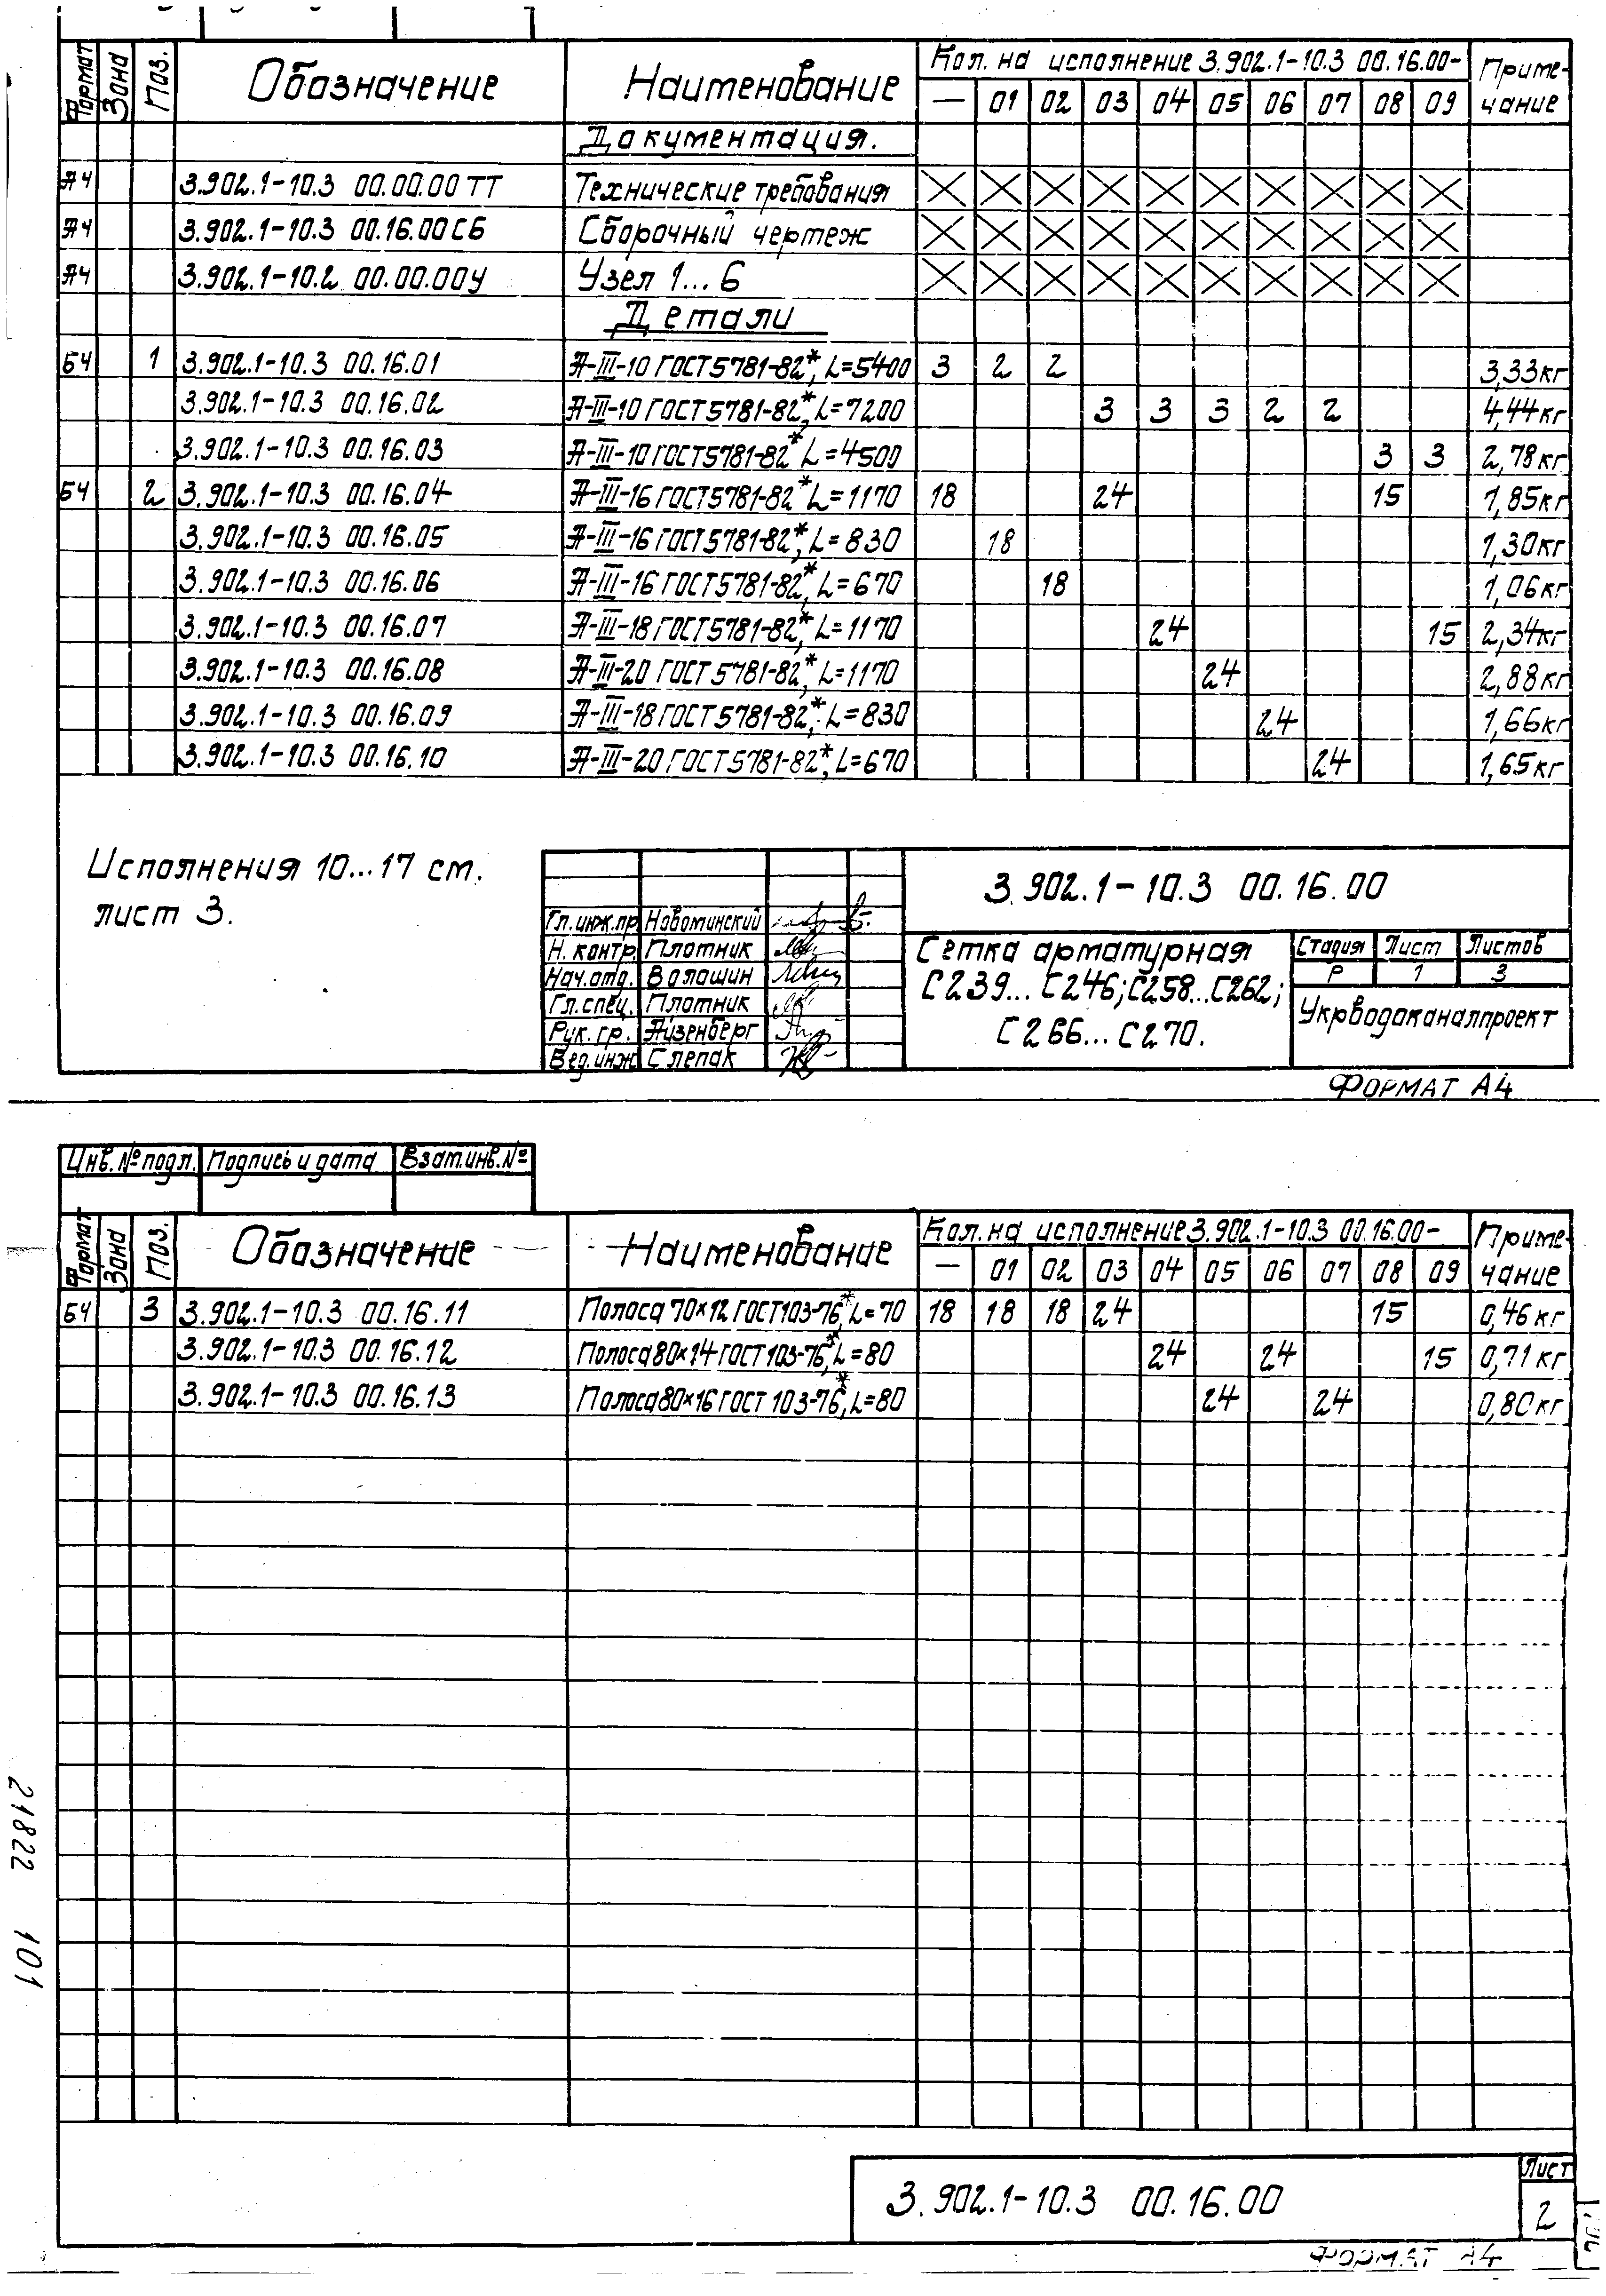 Формат Зона Поз. Обозначение Наименование Кол. на исполнение 3.902.1-10.3 00.16.00- Приме-
— 01 02 03 04 05 06 07 08 09 чание
Документация.
А4 3.902.1-10.3 00.00.00 ТТ Технические требования
А4 3.902.1-10.3 00.16.00СБ Сборочный чертеж
А4 3.902.1-10.2 00.00.00У Узел 1...6
Детали
БЧ 1 3.902.1-10.3 00.16.01 А-III-10 ГОСТ 5781-82*, L=5400 3 2 2 3,33кг
3.902.1-10.3 00.16.02 А-III-10 ГОСТ 5781-82*, L=7200 3 3 3 2 2 4,44кг
3.902.1-10.3 00.16.03 А-III-10 ГОСТ 5781-82* L=4500 3 3 2,78кг
БЧ 2 3.902.1-10.3 00.16.04 А-III-16 ГОСТ 5781-82* L=1170 18 24 15 1,85кг
3.902.1-10.3 00.16.05 А-III-16 ГОСТ 5781-82*, L=830 18 1,30кг
3.902.1-10.3 00.16.06 А-III-16 ГОСТ 5781-82*, L=670 18 1,06кг
3.902.1-10.3 00.16.07 А-III-18 ГОСТ 5781-82*, L=1170 24 15 2,34кг
3.902.1-10.3 00.16.08 А-III-20 ГОСТ 5781-82*, L=1170 24 2,88кг
3.902.1-10.3 00.16.09 А-III-18 ГОСТ 5781-82*, L=830 24 1,66кг
3.902.1-10.3 00.16.10 А-III-20 ГОСТ 5781-82*, L=670 24 1,65кг
Исполнения 10...17 см.
лист 3.
3.902.1-10.3 00.16.00
Гл.инж.пр Новоминский
Н.контр. Плотник
Нач.отд. Волошин
Гл.спец. Плотник
Рук.гр. Айзенберг
Вед.инж Слепак
Сетка арматурная
С239...С246; С258...С262;
С266...С270.
Стадия Лист Листов
Р 1 3
Укрводоканалпроект
ФОРМАТ А4
Инв.№подл. Подпись и дата Взат.инв.№
Формат Зона Поз. Обозначение Наименование Кол. на исполнение 3.902.1-10.3 00.16.00- Приме-
— 01 02 03 04 05 06 07 08 09 чание
БЧ 3 3.902.1-10.3 00.16.11 Полоса 70×12 ГОСТ103-76*, L=70 18 18 18 24 15 0,46кг
3.902.1-10.3 00.16.12 Полоса 80×14 ГОСТ 103-76*, L=80 24 24 15 0,71кг
3.902.1-10.3 00.16.13 Полоса 80×16 ГОСТ 103-76*, L=80 24 24 0,80кг
21822 101
3.902.1-10.3 00.16.00
Лист
2
ФОРМАТ А4